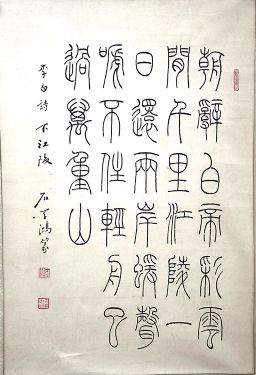 朝辭白帝彩雲
間千里江陵一
日還兩岸蝯聲
嗁不住輕舟已
過萬重山
李白詩 下江陵
石鴻篆